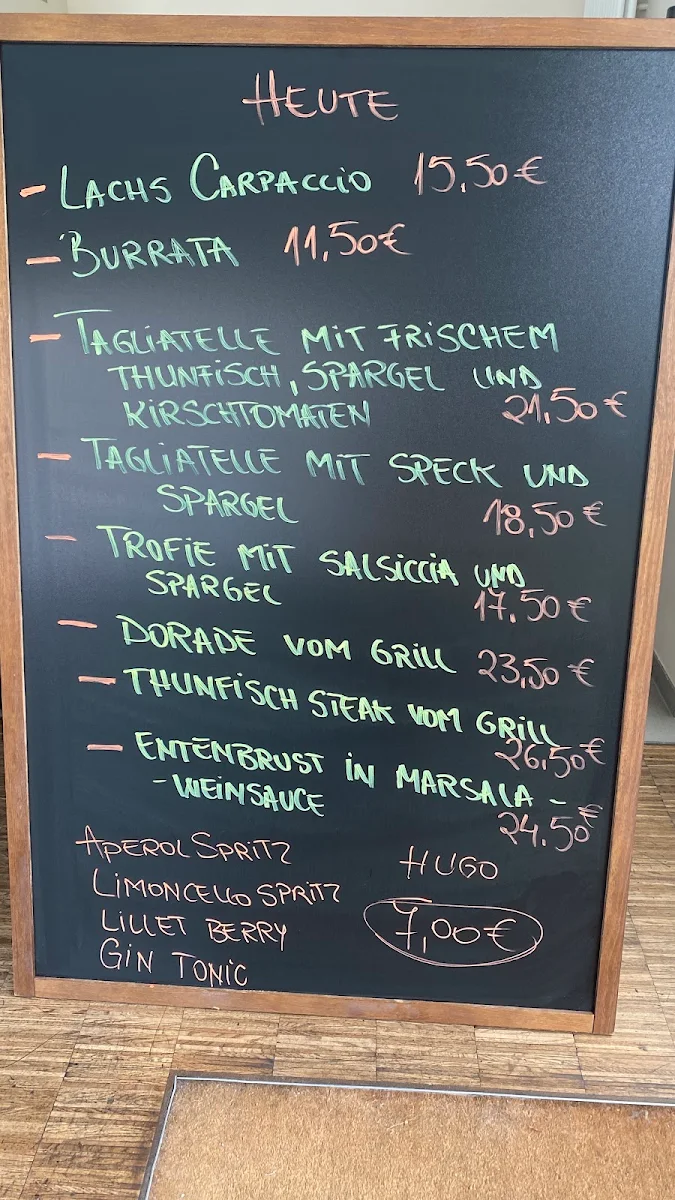 HEUTE
- LACHS CARPACCIO 15,50€
- BURRATA 11,50€
- TAGLIATELLE MIT FRISCHEM
THUNFISCH, SPARGEL UND
KIRSCHTOMATEN 21,50€
- TAGLIATELLE MIT SPECK UND
SPARGEL 18,50€
- TROFIE MIT SALSICCIA UND
SPARGEL 17,50€
- DORADE VOM GRILL 23,50€
- THUNFISCH STEAK VOM GRILL
26,50€
- ENTENBRUST IN MARSALA -
-WEINSAUCE
24.50€
APEROL SPRITZ
LIMONCELLO SPRITZ
LILLET BERRY
GIN TONIC
HUGO
7,00€